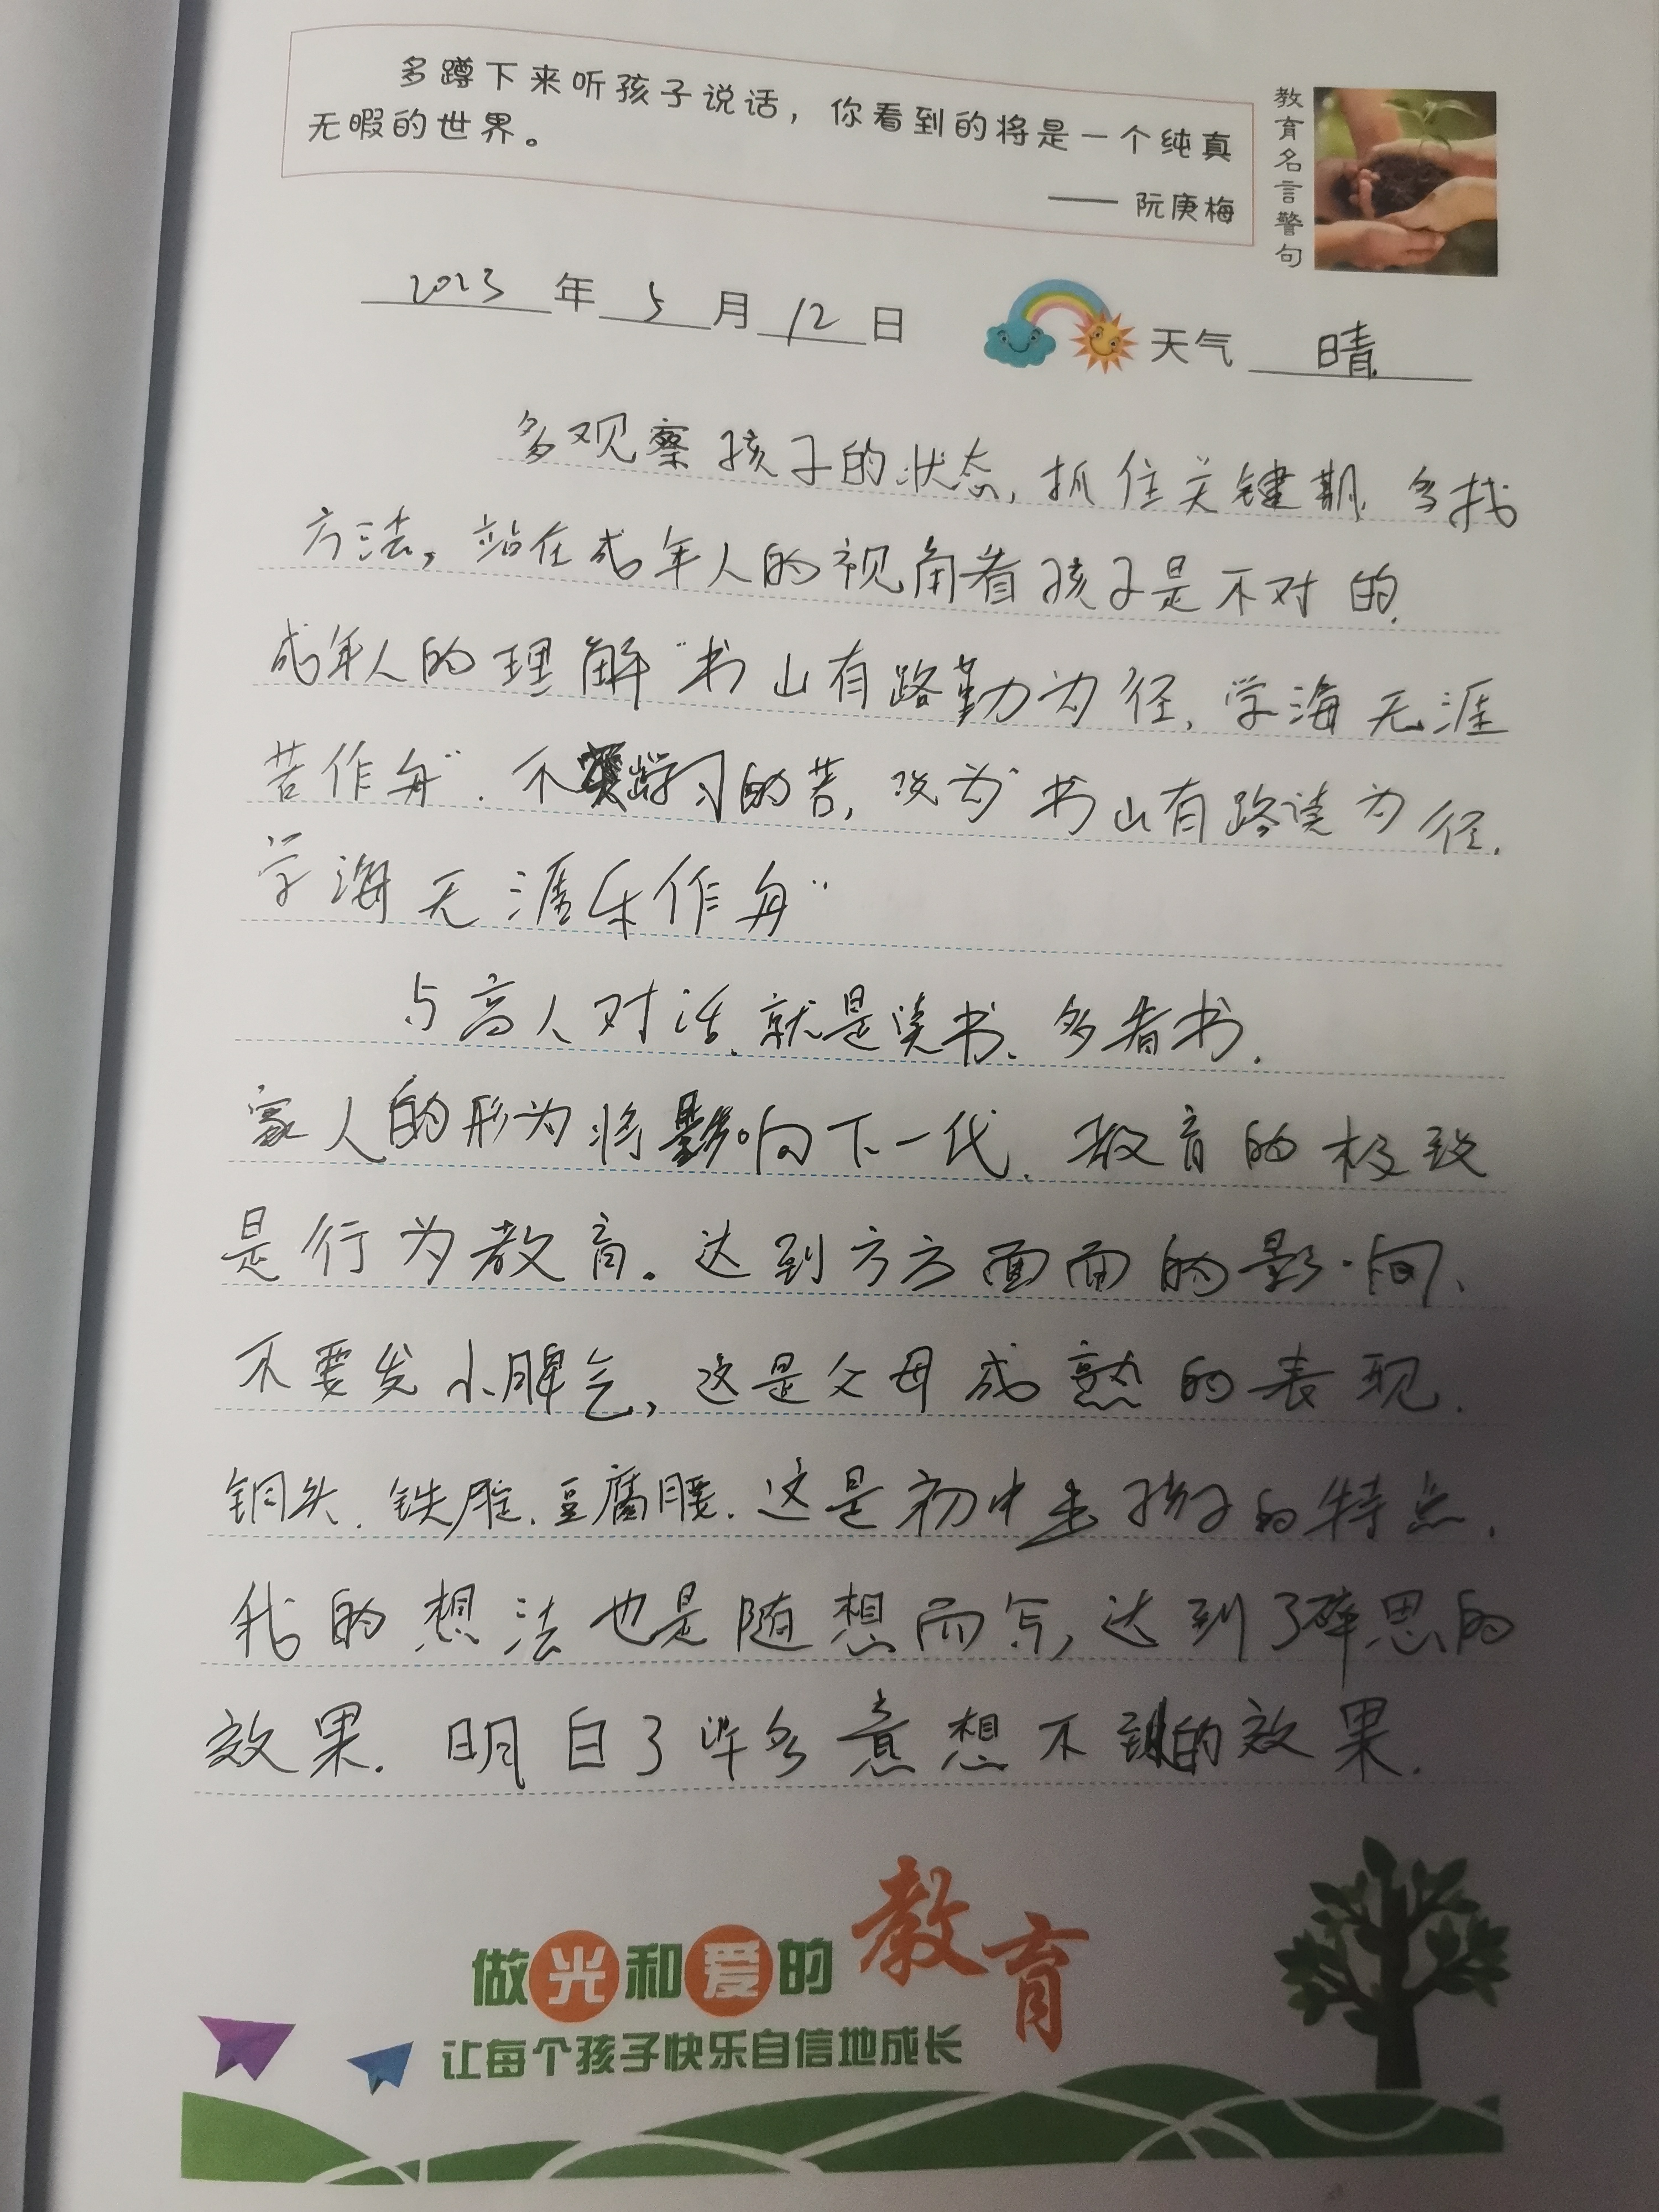 多蹲下来听孩子说话，你看到的将是一个纯真
无暇的世界。
—— 阮庚梅
教育名言警句
2023年5月12日 天气 晴
多观察孩子的状态，抓住关键期，多找
方法，站在成年人的视角看孩子是不对的.
成年人的理解“书山有路勤为径，学海无涯
苦作舟”. 不要学习的苦，改为“书山有路读为径.
学海无涯乐作舟”
与高人对话、就是读书、多看书.
家人的形为将影响下一代、教育的极致
是行为教育。达到方方面面的影响、
不要发小脾气，这是父母成熟的表现.
铜头、铁腿、豆腐腰. 这是初中生孩子的特点.
我的想法也是随想而写，达到了碎思的
效果. 明白了许多意想不到的效果.
做光和爱的教育
让每个孩子快乐自信地成长